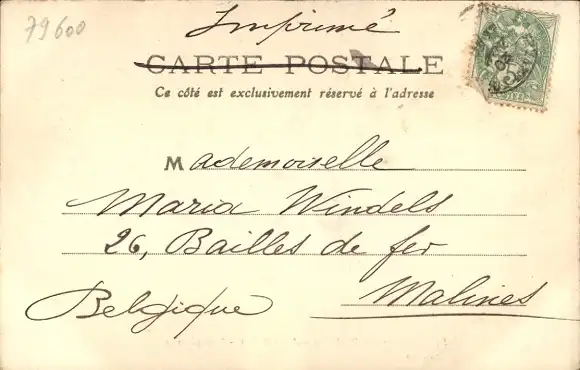 79600
Imprimé
CARTE POSTALE
Ce côté est exclusivement réservé à l'adresse
Mademoiselle
Maria Windels
26, Bailles de fer
Malines
Belgique